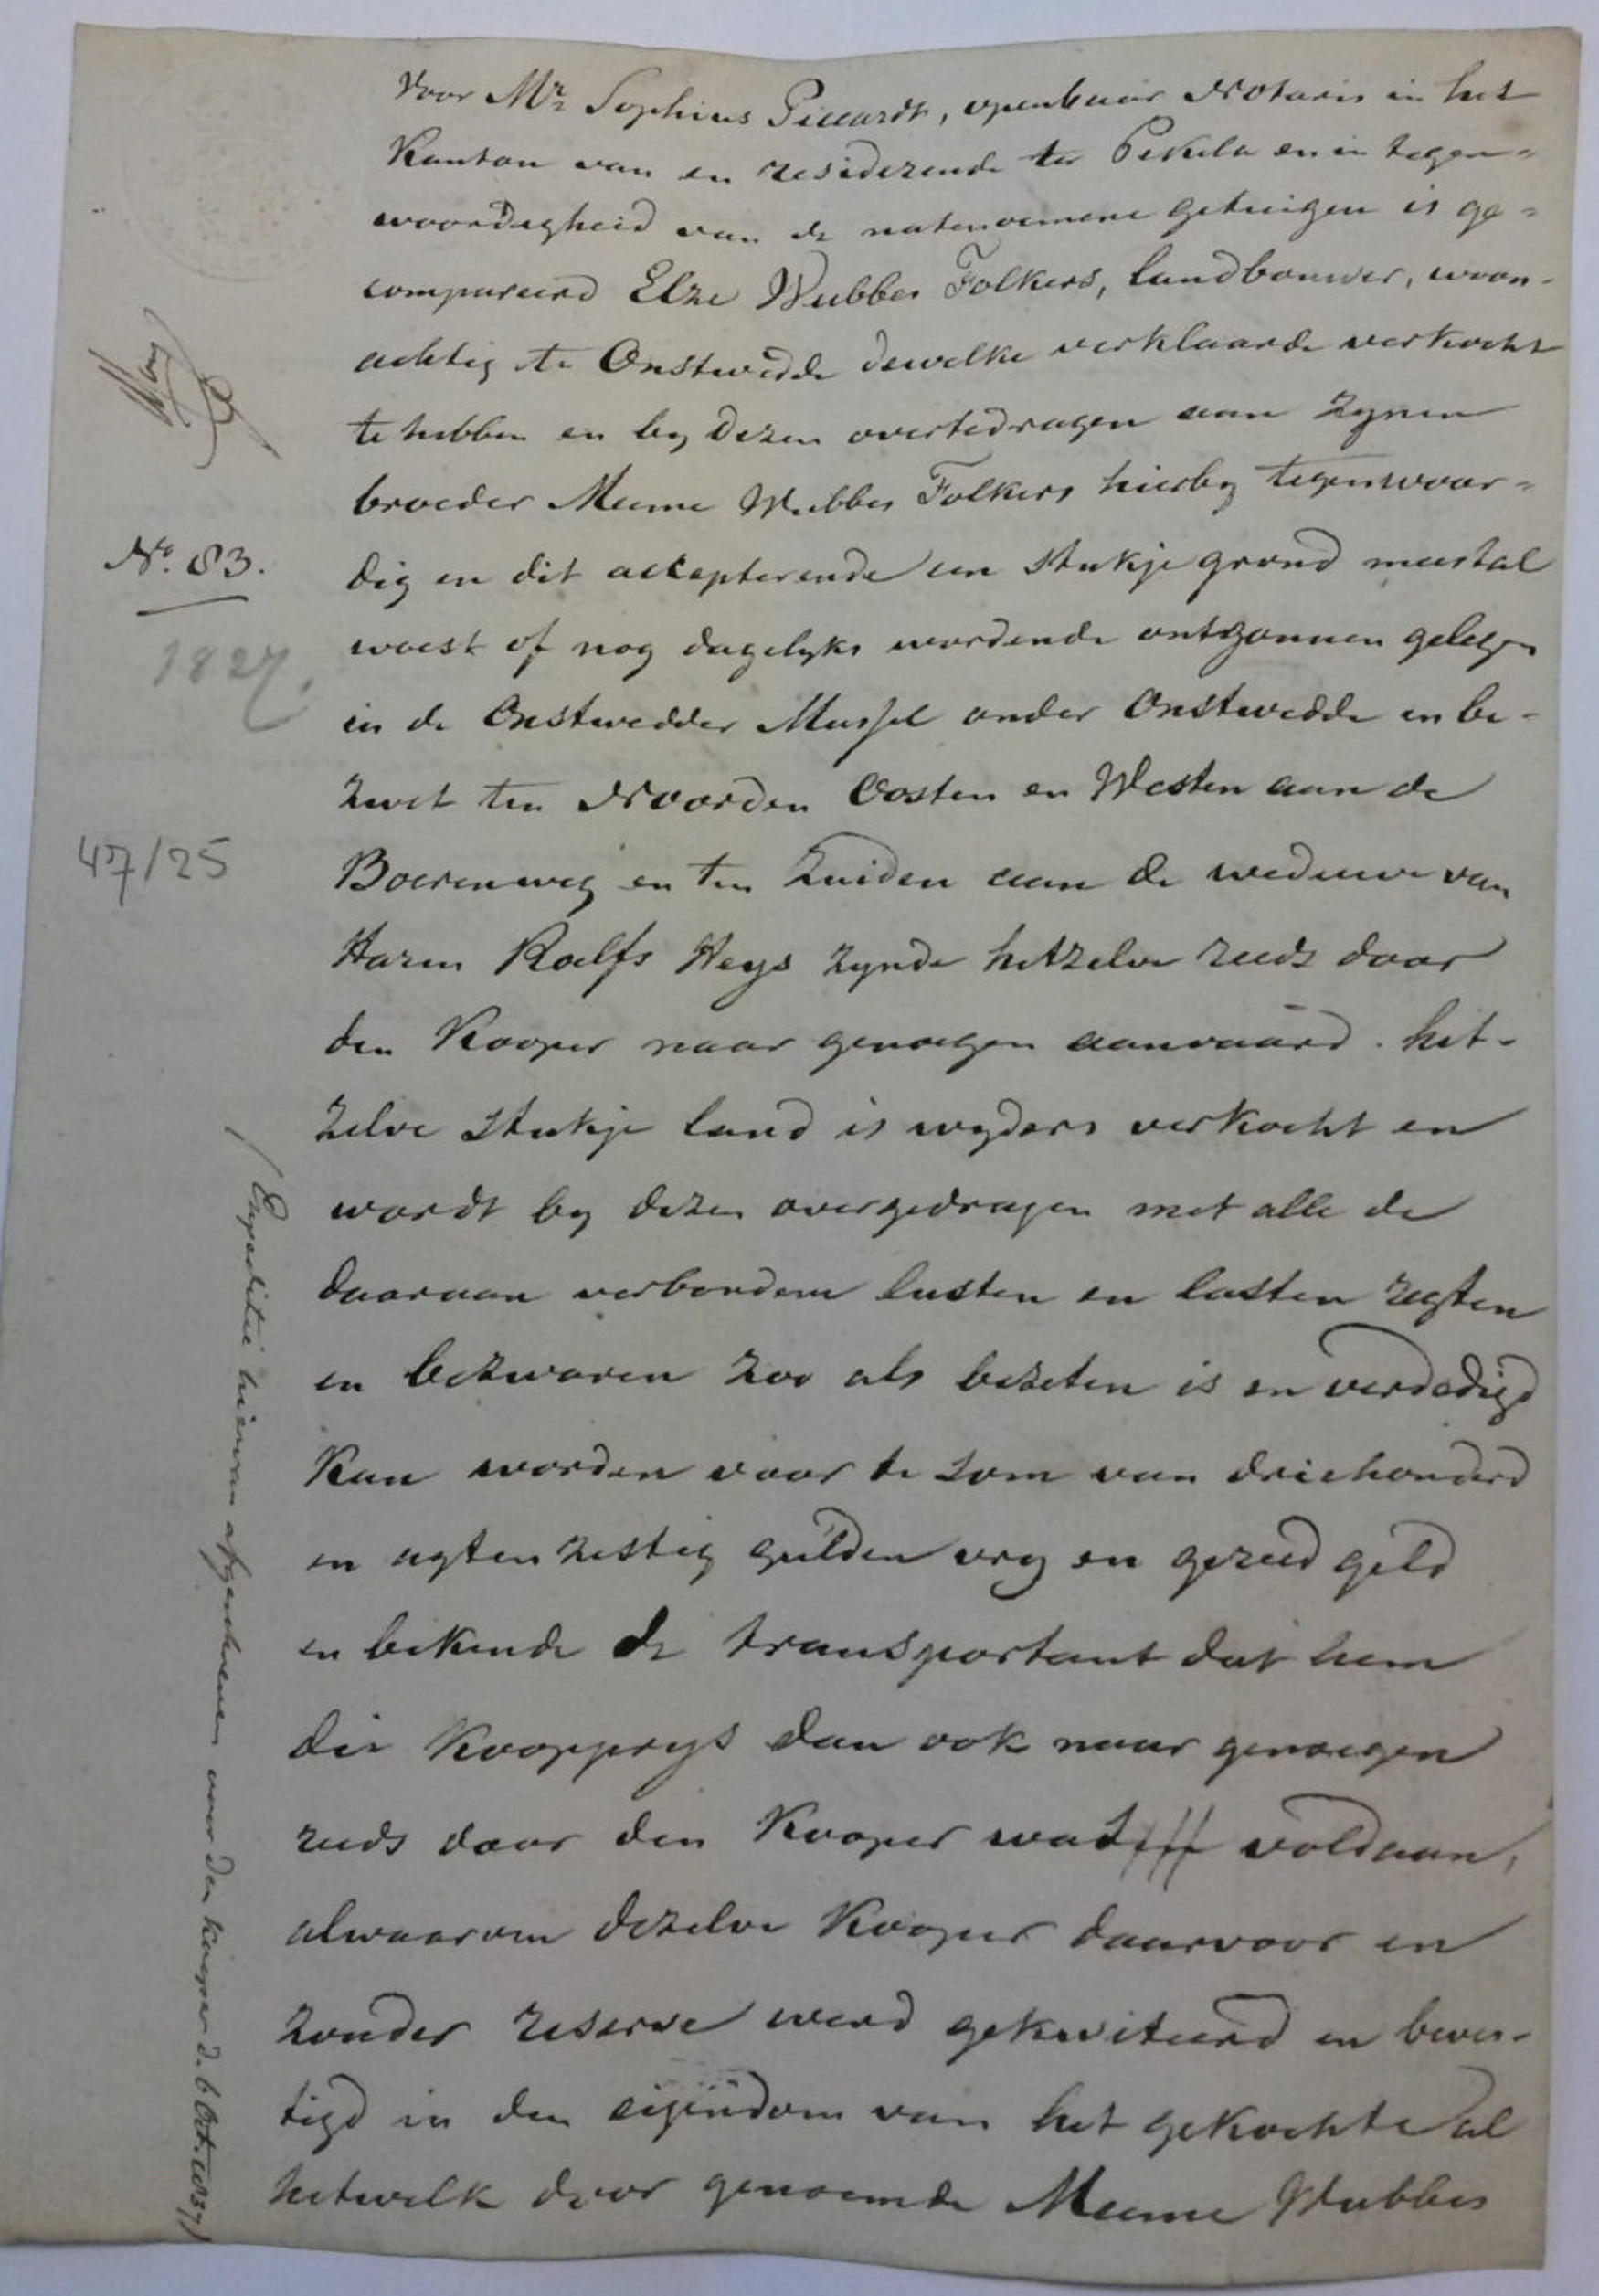 Voor Mr Sophius Piccardt, openbaar Notaris in het
Kanton van en resideerende te Pekela en in tegen=
woordigheid van de natenoemene getuigen is ge=
compareerd Elze Wubbes Folkers, landbouwer, woon-
achtig te Onstwedde dewelke verklaarde verkocht
te hebben en by dezen overtedragen aan zynen
broeder Meeme Wubbes Folkers hierby tegenwoor=
dig en dit accepterende een stukje grond meestal
woest of nog dagelyks wordende ontgonnen gelegen
in de Onstwedder Mussel onder Onstwedde en be-
zwet ten Noorden Oosten en Westen aan de
Boerenweg en ten Zuiden aan de weduwe van
Harm Roelfs Heys zynde hetzelve reeds door
den Kooper naar genoegen aanvaard. het-
zelve stukje land is wyders verkocht en
wordt by dezen overgedragen met alle de
daaraan verbondene lusten en lasten regten
en bezwaren zoo als bezeten is en verdedigd
kan worden voor de som van driehonderd
en agtenzestig gulden vry en gereed geld
en bekende de transportant dat hem
die Koopprys dan ook naar genoegen
reeds door den Kooper was voldaan,
alwaarom dezelve Kooper daarvoor en
zonder reserve werd gekwiteerd en beves-
tigd in den eigendom van het gekochte al
hetwelk door genoemde Meeme Wubbes
No. 83.
1827.
47/25
Expeditie hiervan afgegeven voor den kooper d. 6 Oct. 1837